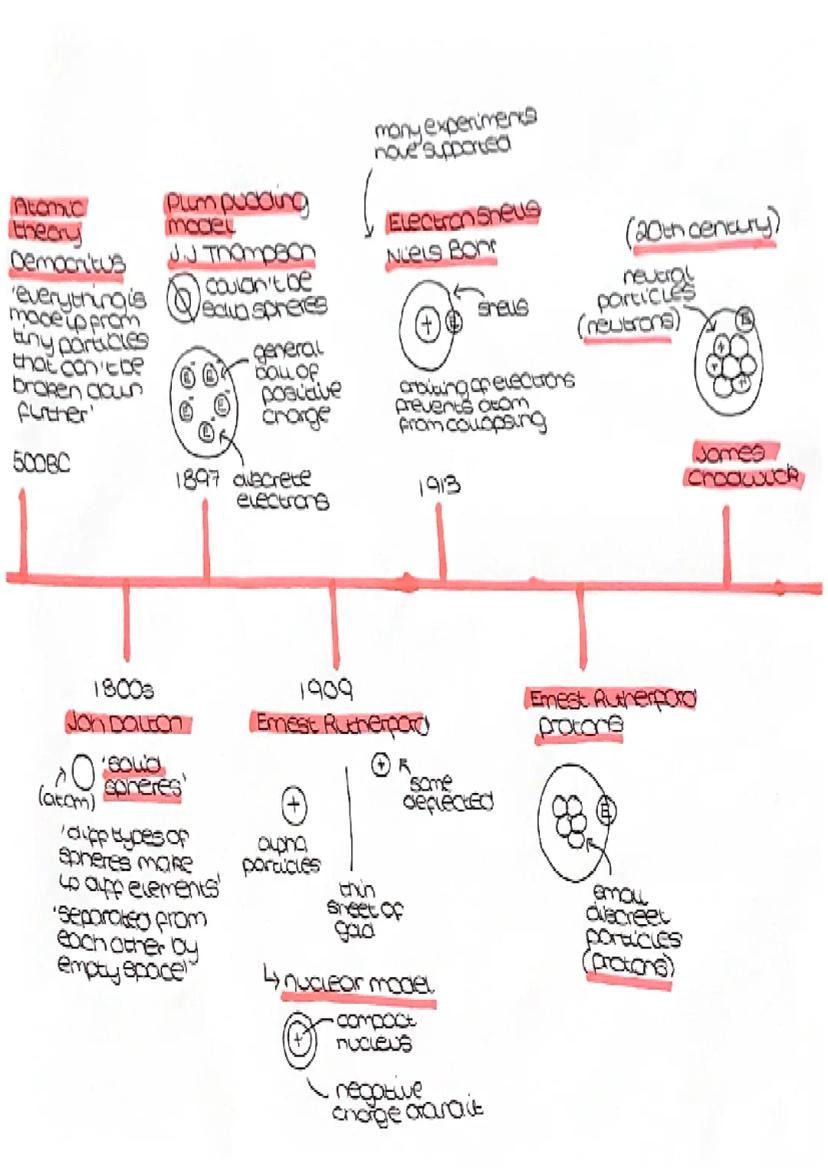 many experiments
have supported
Atomic
theory
Democritus
'everything is
made up from
tiny particles
that can't be
broken down
further'
500BC
Plum pudding
model
J.J Thompson
couldn't be
solid spheres
general
ball of
positive
charge
E E
E E
E
1897
discrete
electrons
Electron shells
Niels Bohr
shells
+ E
orbiting of electrons
prevents atom
from collapsing
1913
(20th century)
neutral
particles
(neutrons)
E
+
+
+
James
Chadwick
1800s
Jon Dalton
(atom)
'solid
spheres'
'diff types of
spheres make
up diff elements'
'separated from
each other by
empty space'
1909
Ernest Rutherford
+
some
deflected
+
alpha
particles
thin
sheet of
gold
↳ nuclear model
+
compact
nucleus
negative
charge around it
Ernest Rutherford
protons
E
small
discreet
particles
(protons)